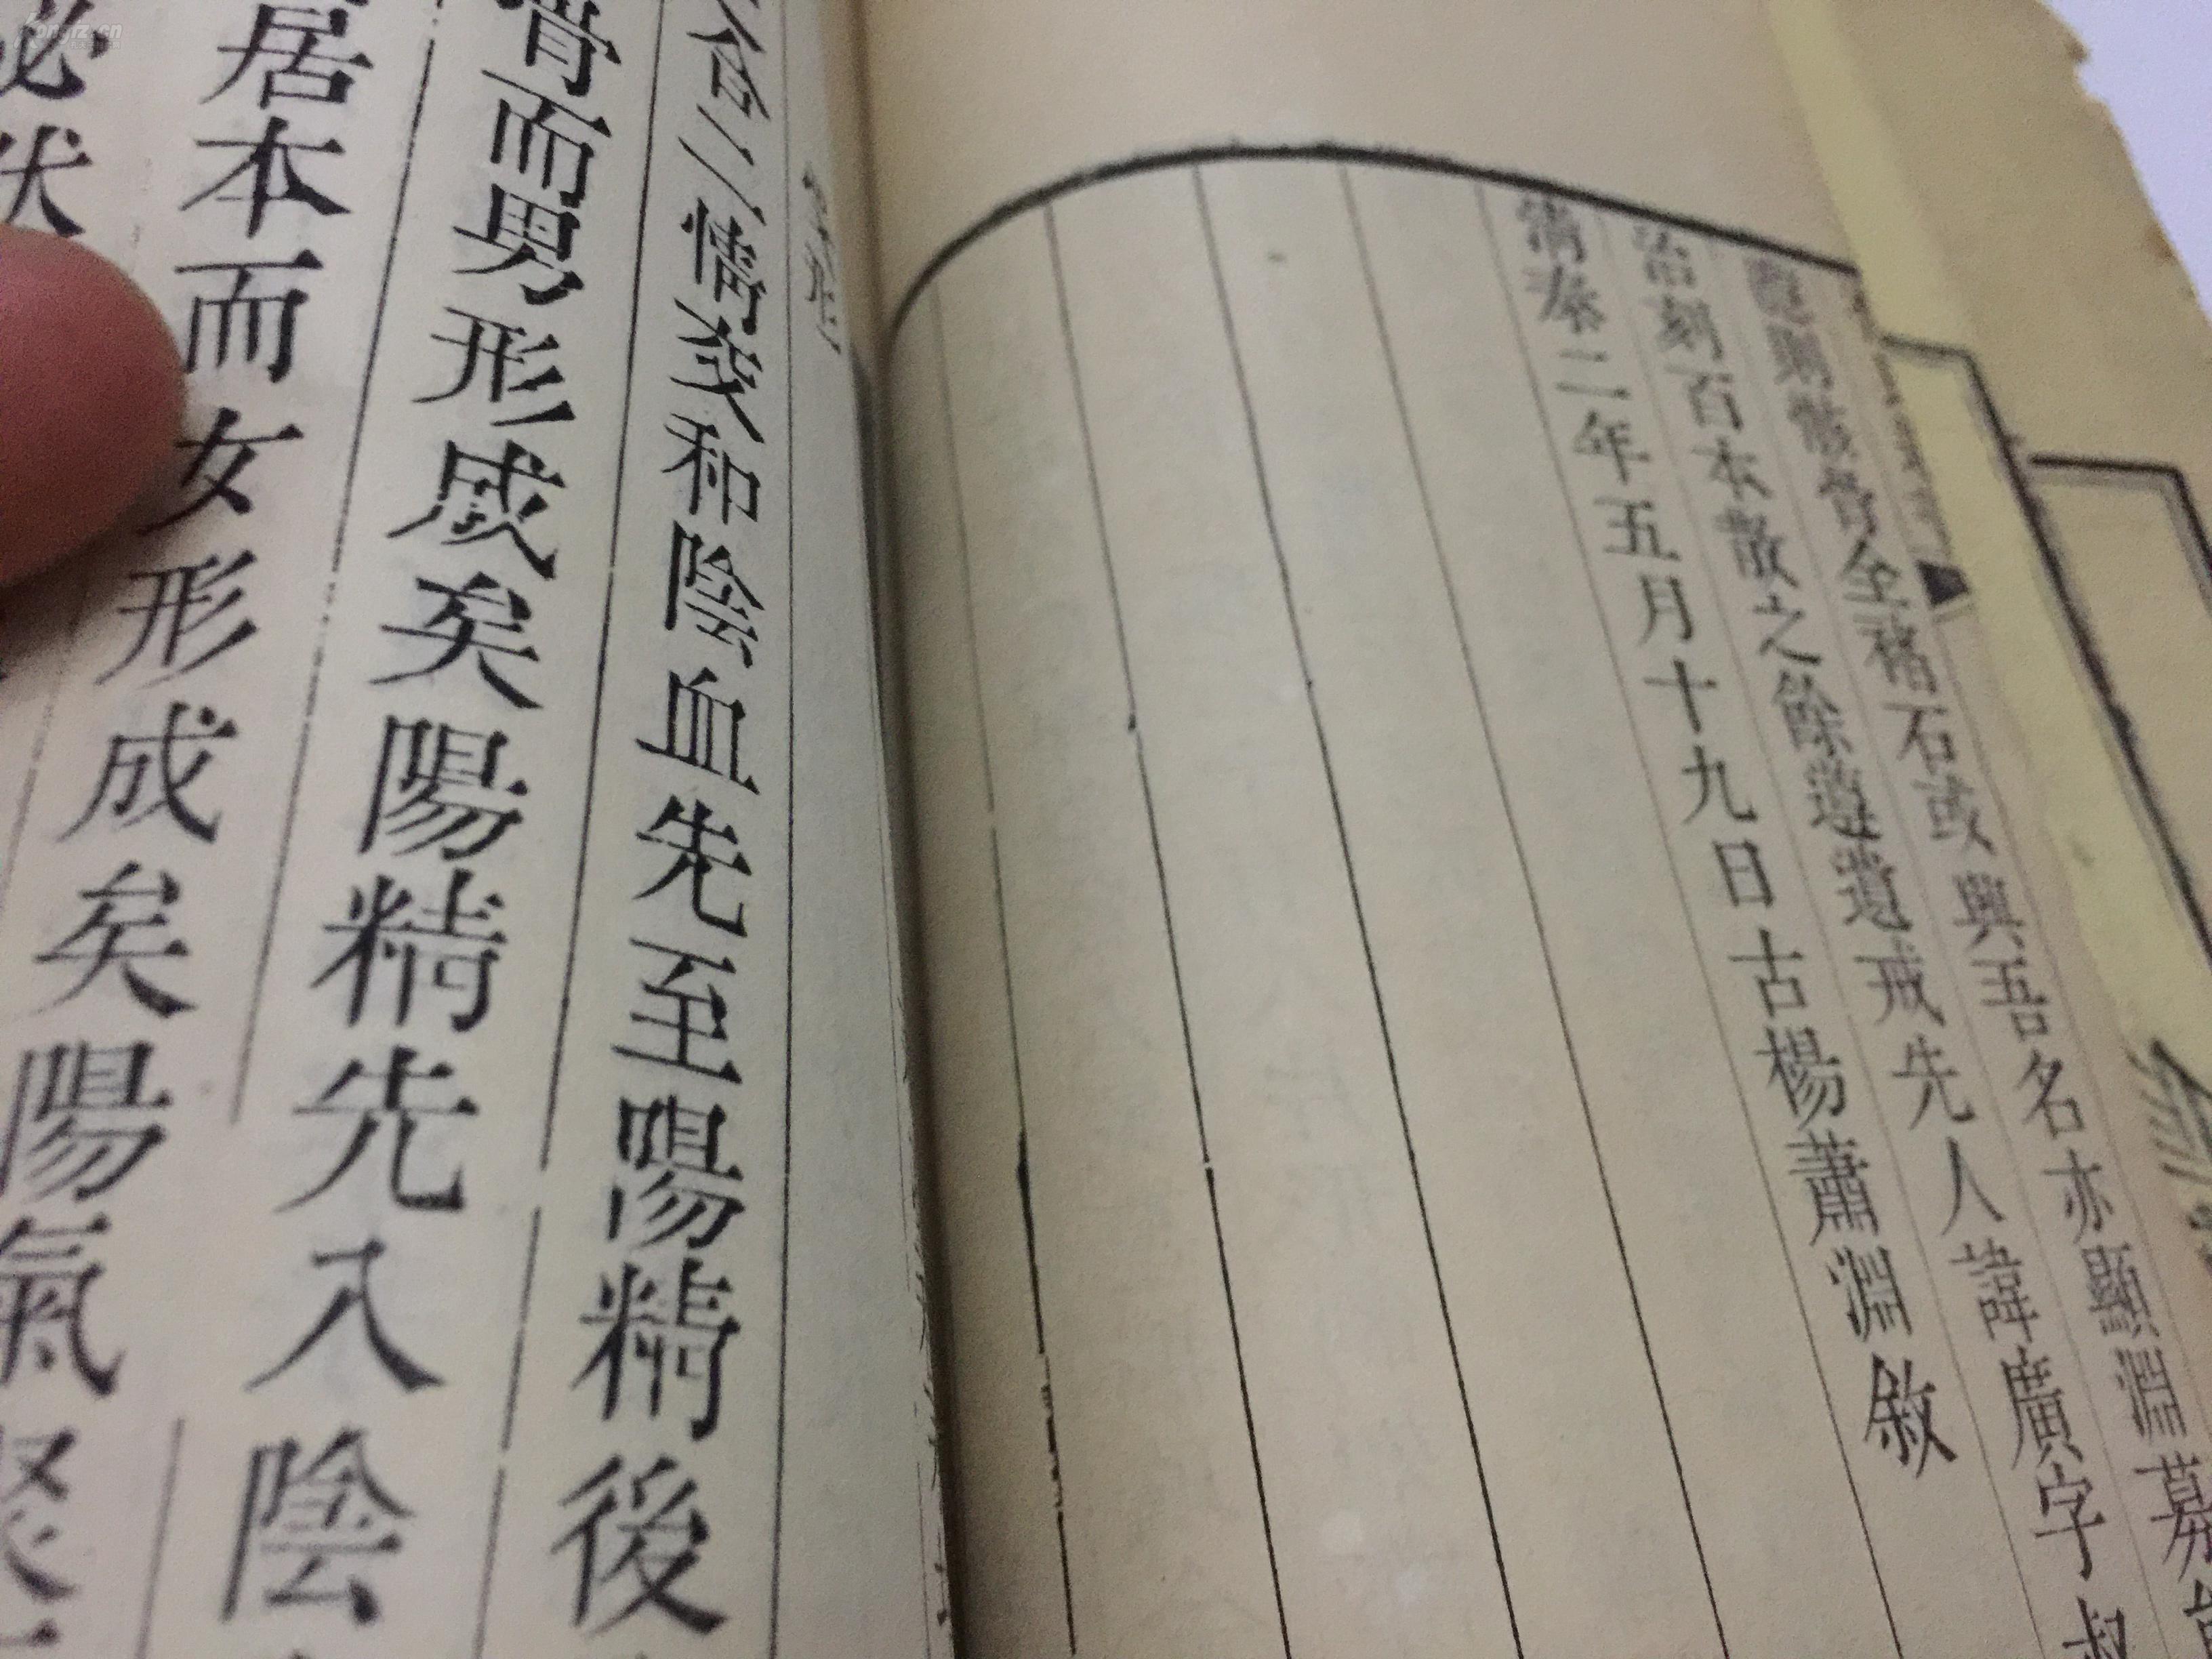 骨全褚石或與吾名亦顯淵募
治刻百本散之餘遵遺戒先人諱廣字叔
清泰二年五月十九日古楊蕭淵敘
合二情交和陰血先至陽精後
骨而男形成矣陽精先入陰
居本而女形成矣陽氣聚
必伏